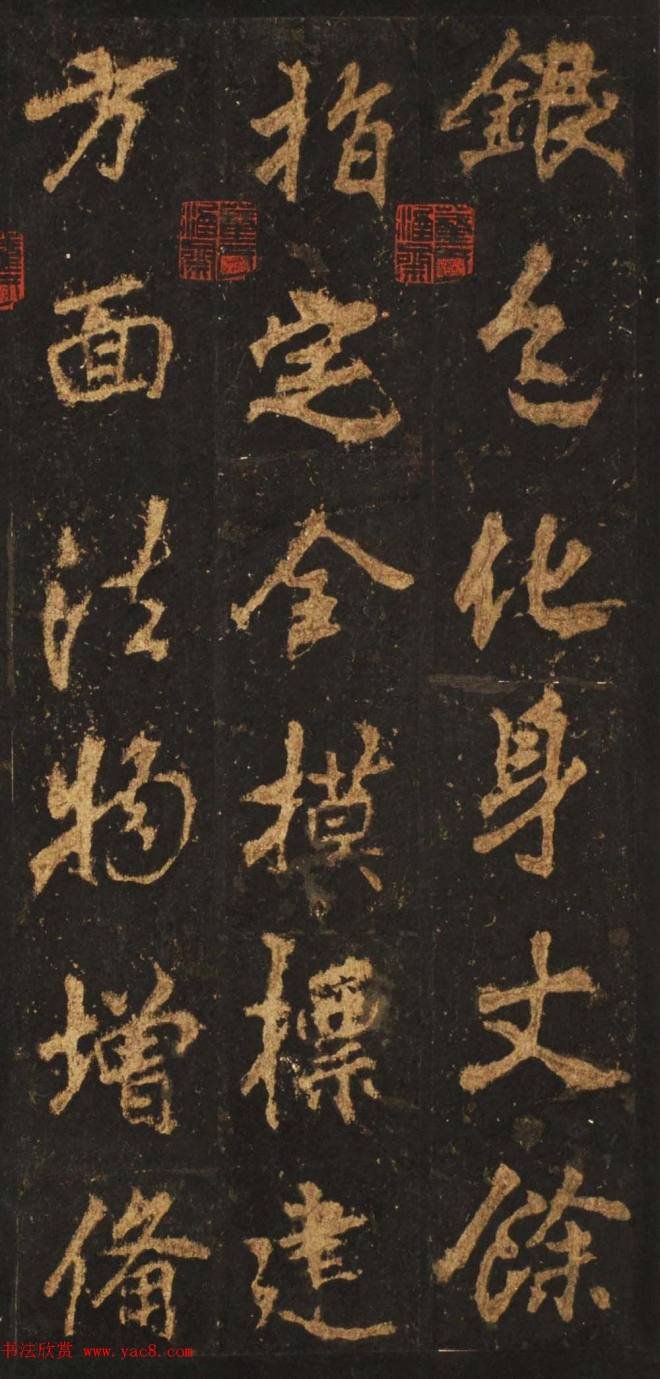 銀色化身丈餘
指定全模標建
方面法物增備
书法欣赏 www.yac8.com